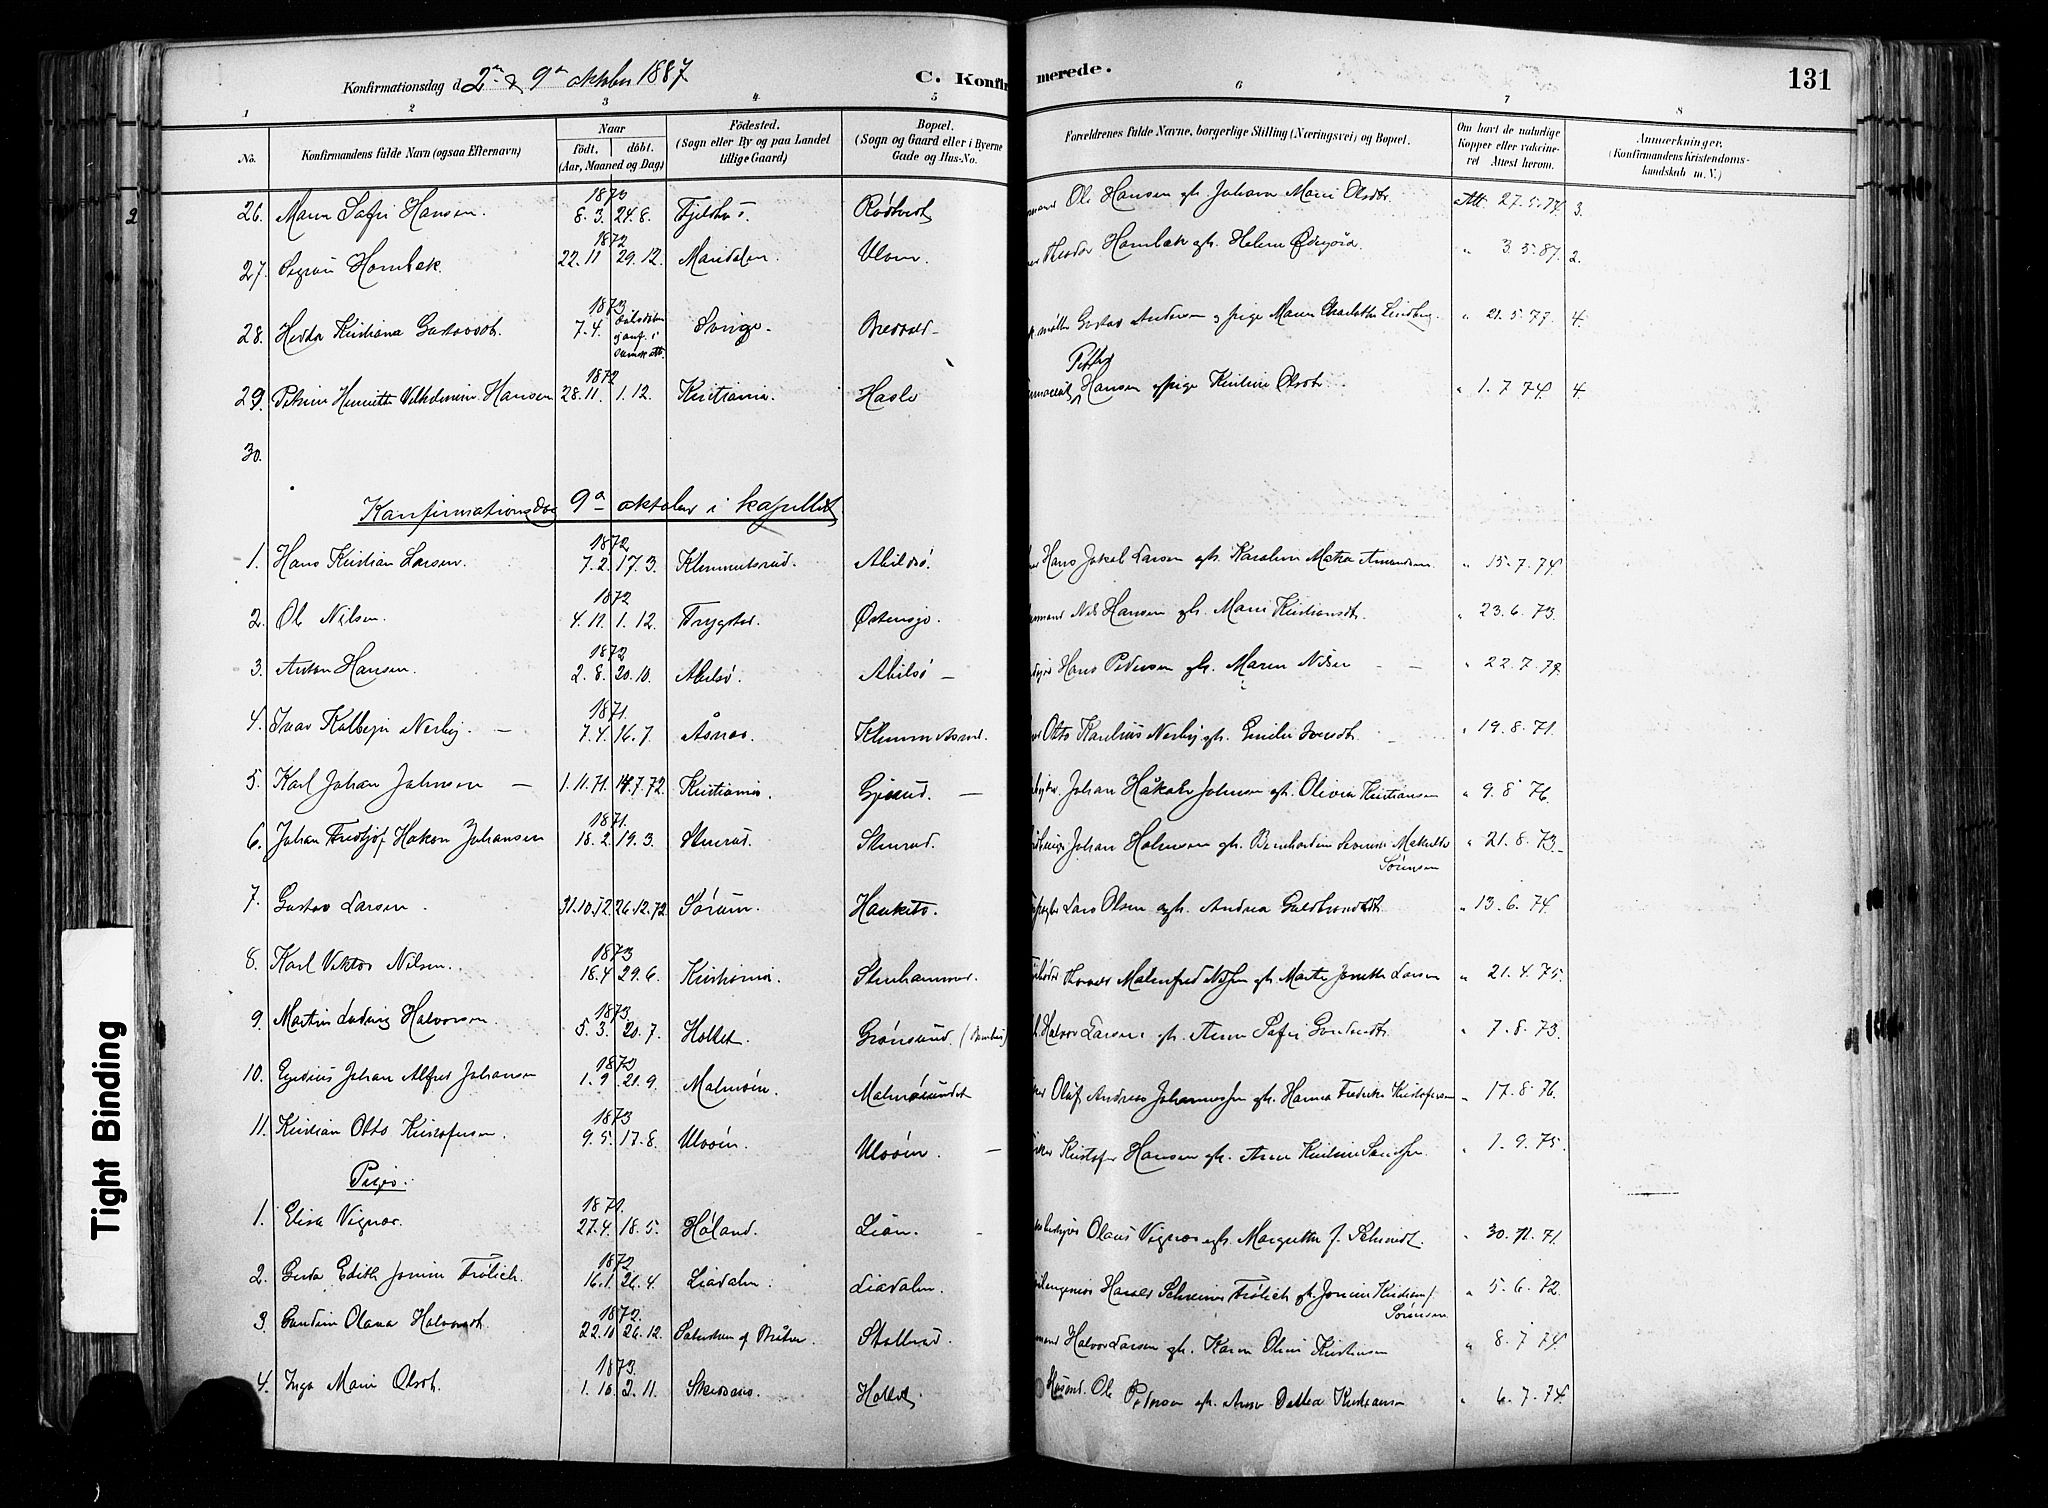 Konfirmationsdag d. 2den & 9de oktober 1887
C. Konfir merede.
131
1 2 3 4 5 6 7 8
No. Konfirmandens fulde Navn (ogsaa Efternavn) Naar født. døbt. (Aar, Maaned og Dag) Fødested. (Sogn eller By og paa Landet tillige Gaard) Bopæl. (Sogn og Gaard eller i Byerne Gade og Hus-No. Forældrenes fulde Navne, borgerlige Stilling (Næringsvei) og Bopæl. Om havt de naturlige Kopper eller vakcineret Attest herom. Anmærkninger. (Konfirmandens Kristendomskundskab m. V.)
2
26. Maren Sofie Hansen. 1873 8.3. 24.8. Rødtvedt Ole Hansen gh. Johanne Marie Olsdt. Att. 27.5.74. 3.
27. Sigrun Hornbæk. 1872 22.11 29.12. Maridalen Ulven Theodor Hornbæk gh. Helene " 3.5.87. 2.
28. Hedda Kristiana Gustavsdt. 1873 7.4. Sverige. Bredvedt Gustav Andersen og pige Maren Charlotte Lindberg. " 21.5.79. 4.
29. Petrine Henriette Vilhelmine Hansen 1872 28.11. 1.12. Kristiania. Hasle Petter Hansen pige Kirstine Olsdt. " 1.7.74. 4.
30.
Konfirmationsdag 9de oktober i kapellet
1. Hans Kristian Larsen. 1872 7.2. 17.3. Klemmetsrud. Abildsø. Hans Jakob Larsen gh. Karoline Mathea Amundsen " 15.7.74.
2. Ole Nilsen. 1872 4.11. 1.12. Trygstad. Østensjø. Nils Hansen gh. Marie Kristiansdt. " 23.6.73.
3. Anton Hansen. 1872 2.8. 20.10. Abilsø. Abilsø – Hans Pedersen gh. Maren Nilsen – – " 22.7.79.
4. Ivar Kolbejn Nerby. – 1871. 7.4. 16.7. Åsnes. Klemmetsrud. Otto Karelius Nerby gh. Emilie " 19.8.71.
5. Karl Johan Johnsen – 1.11.71. 14.7.72. Kristiania. Gjersrud. – Johan Håkon Johnsen gh. Olivia Kristiansen " 9.8.76.
6. Johan Fredhjof Hakon Johansen 1871. 18.2. 19.3. Stenrud. Stenrud. Johan Halvorsen gh. Bernhardine Severine Mathilde Sørensen " 21.8.73.
7. Gustav Larsen. 31.10.72. 26.12.72 Sørum. Hauketo. Lars Olsen gh. Andrea Guldbrandsdt. " 13.6.74.
8. Karl Viktor Nilsen. 1873 18.4 29.6. Kristiania. Stenhammer. Malmfred Nilsen gh. Marte Jonette Larsen " 21.4.75.
9. Martin Ludvig Halvorsen. 1873. 5.3. 20.7. Hollet. Grønsund. Halvor Larsen gh. Anne Sofie " 7.8.73.
10. Egidius Johan Alfred Johansen 1872 1.9 21.9. Malmøen. Malmøsundet Oluf Andreas Johannessen gh. Hanna Fredrikke Kristofersen " 17.8.76.
11. Kristian Otto Kristofersen. 1873 9.5. 17.8. Ulvøen. Ulvøen. – Kristofer Hansen gh. Anne Kirstine " 1.9.75.
Piger.
1. Elise Vignes. 1871. 27.4. 18.5. Høland. Lian. – Olaus Vignes gh. Margrethe J. Schmidt. " 30.11.71.
2. Gerda Edith Jonine Frølich. 1872 16.1. 26.4. Liadalen. Liadalen. Frølich gh. Jonine Sørensen " 5.6.72.
3. Gundine Olava Halvorsdt. 1872. 22.10 26.12. Stallerud. Halvor Larsen gh. Karen Oline Kristiansen " 8.7.74.
4. Inga Marie Olsdt. 1873. 1.10. 2.11. Hollet Ole Pedersen gh. Anne Dethea Kristiansen " 6.7.74.
Tight Binding